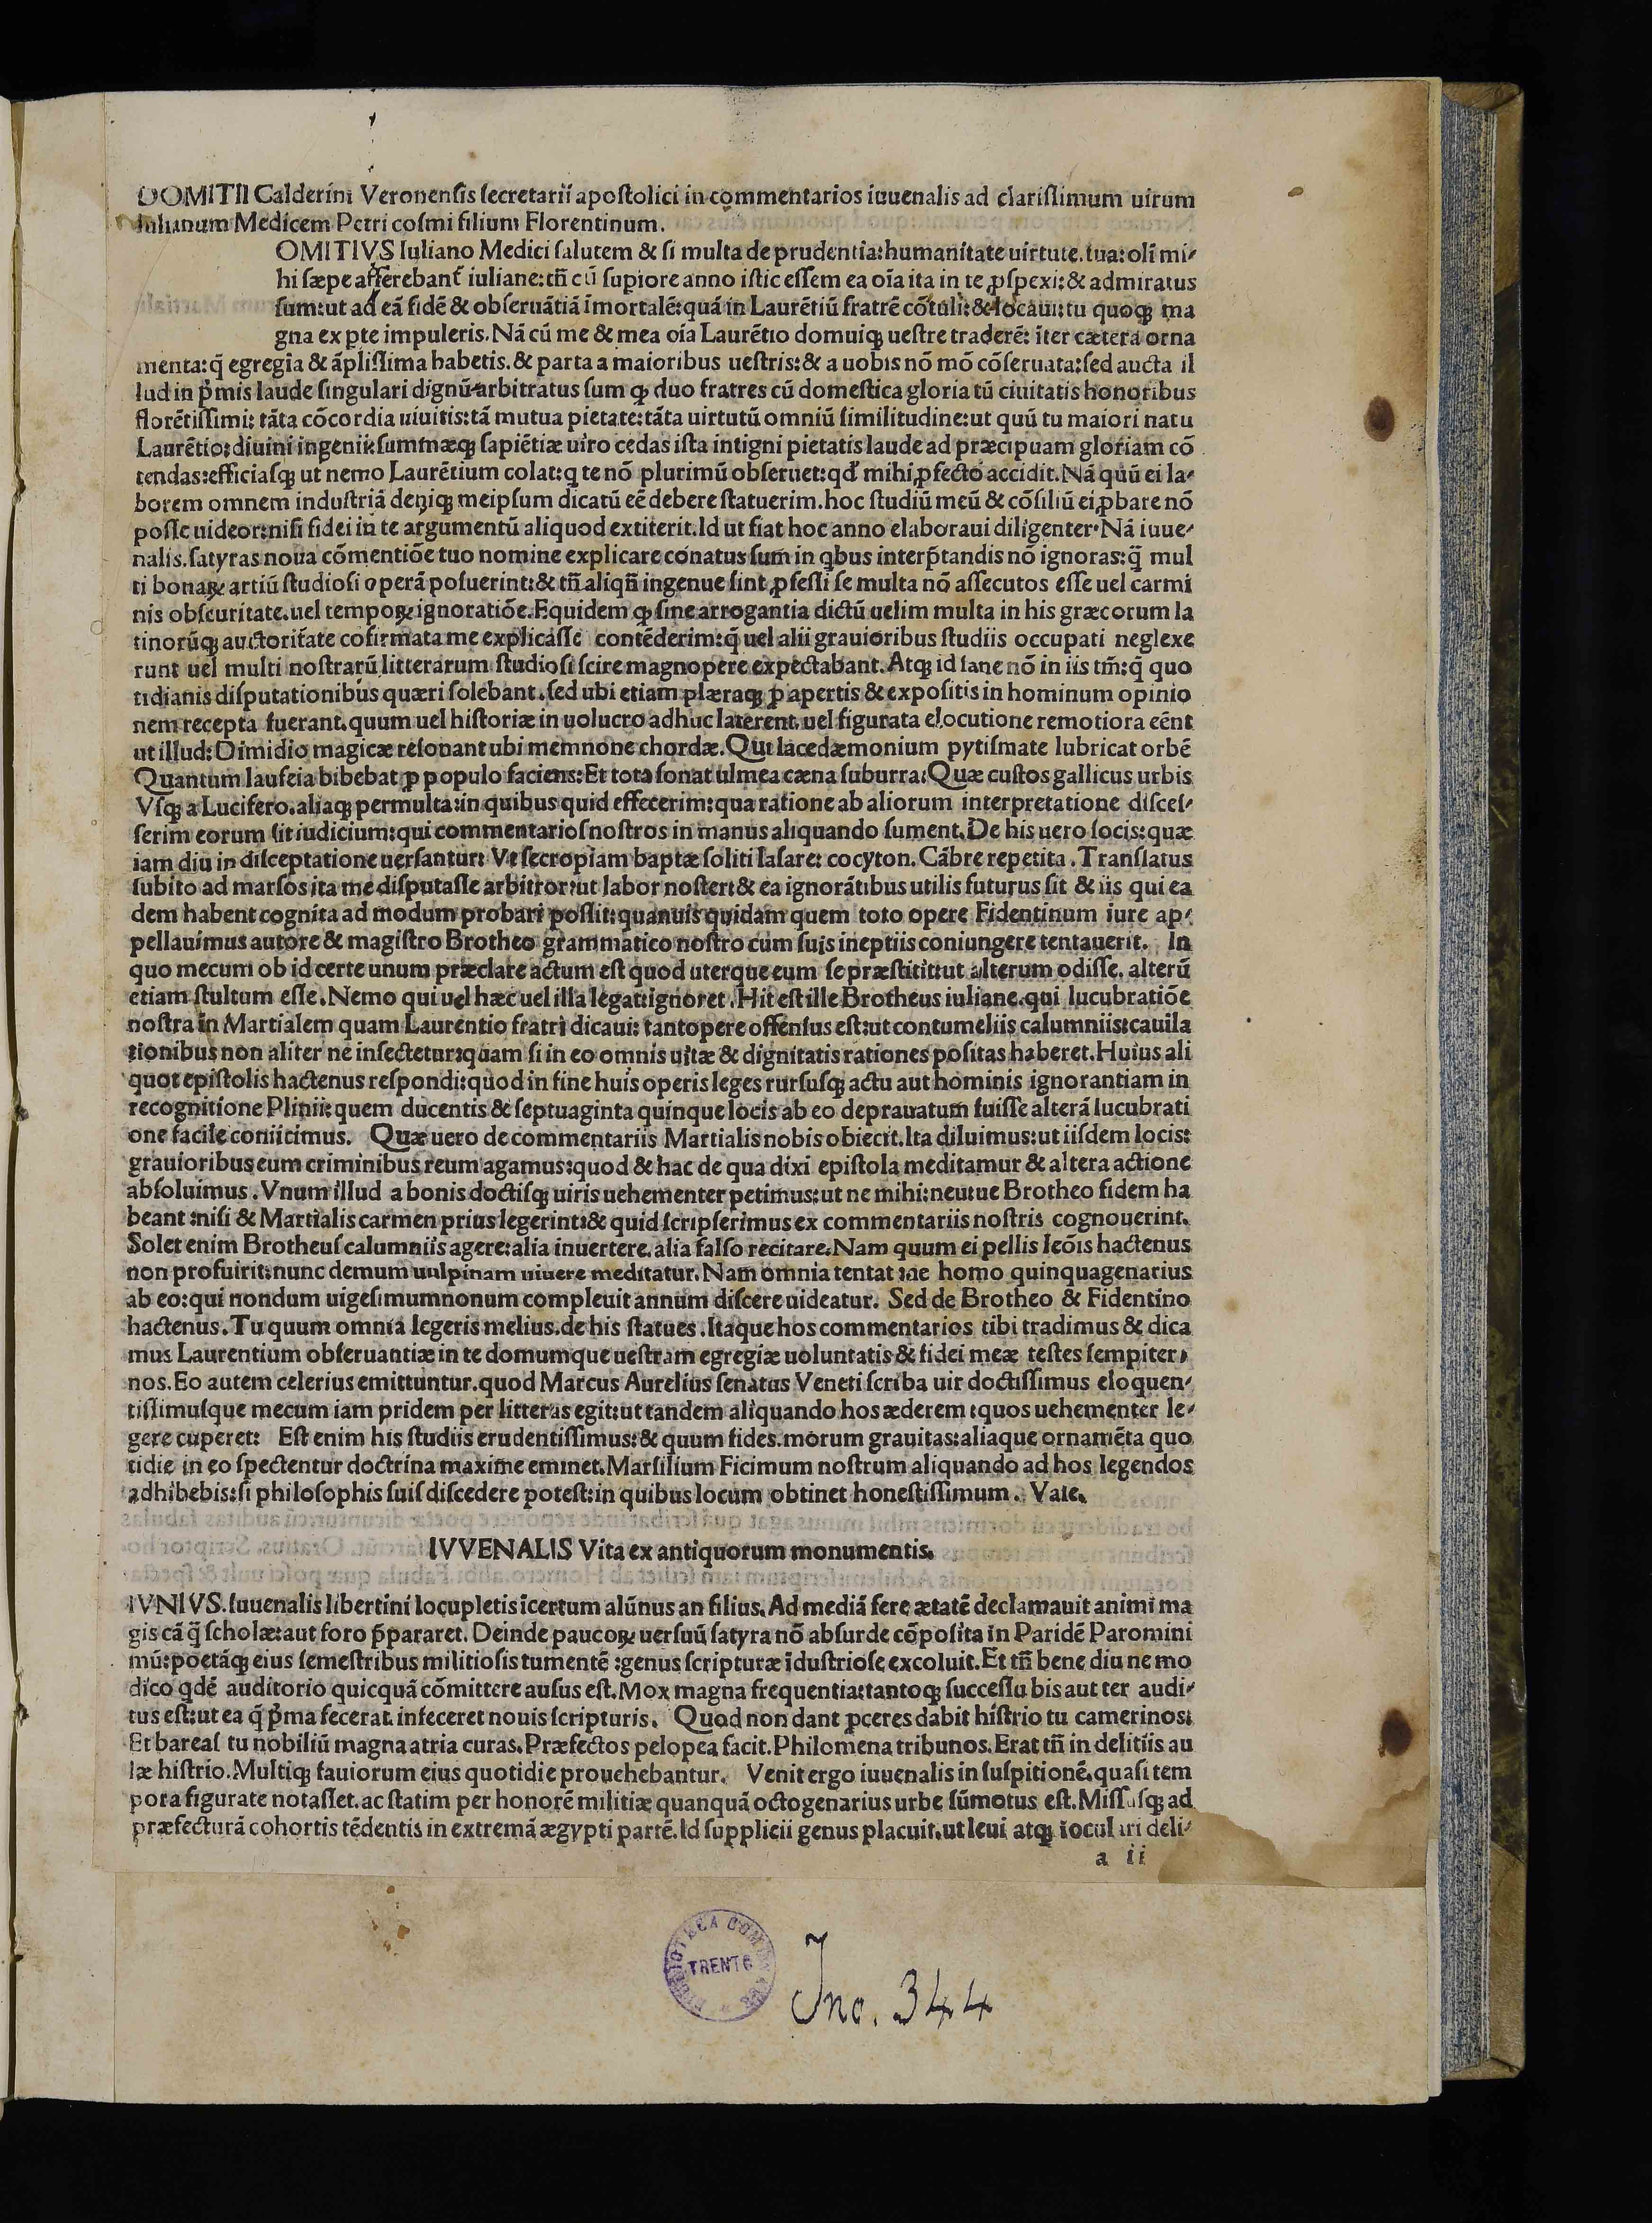 DOMITII Calderini Veronensis secretarii apostolici in commentarios iuuenalis ad clarissimum uirum
Iulianum Medicem Petri cosmi filium Florentinum.
OMITIVS Iuliano Medici salutem & si multa de prudentia: humanitate uirtute. tua: olī mi-
hi sæpe afferebant᷑ iuliane: tn̄ cū supiore anno istic essem ea oīa ita in te ꝓspexi: & admiratus
sum: ut ad eā fidē & obseruātiā īmortalē: quā in Laurētiū fratrē cōtuli: & locaui: tu quoqꝫ ma
gna ex pte impuleris. Nā cū me & mea oīa Laurētio domuiqꝫ uestre traderē: īter cætera orna
menta: q̄ egregia & āplissima habetis. & parta a maioribus uestris: & a uobis nō mō cōseruata: sed aucta il
lud in p̄mis laude singulari dignū arbitratus sum qꝫ duo fratres cū domestica gloria tū ciuitatis honoribus
florētissimi: tāta cōcordia uiuitis: tā mutua pietate: tāta uirtutū omniū similitudine: ut quū tu maiori natu
Laurētio: diuini ingenii: summæqꝫ sapiētiæ uiro cedas ista intigni pietatis laude ad præcipuam gloriam cō
tendas: efficiasqꝫ ut nemo Laurētium colat: q te nō plurimū obseruet: qđ mihi ꝓfecto accidit. Nā quū ei la-
borem omnem industriā deniqꝫ meipsum dicatū eē debere statuerim. hoc studiū meū & cōsiliū ei ꝓbare nō
posse uideor: nisi fidei in te argumentū aliquod extiterit. Id ut fiat hoc anno elaboraui diligenter. Nā iuue-
nalis. satyras noua cōmentiōe tuo nomine explicare conatus sum in qbus interp̄tandis nō ignoras: q̄ mul
ti bonaꝝ artiū studiosi operā posuerint: & tn̄ aliqn̄ ingenue sint ꝓfessi se multa nō assecutos esse uel carmi
nis obscuritate. uel tempoꝝ ignoratiōe. Equidem qꝫ sine arrogantia dictū uelim multa in his græcorum la
tinorūqꝫ auctoritate cofirmata me explicasse contēderim: q̄ uel alii grauioribus studiis occupati neglexe
runt uel multi nostrarū litterarum studiosi scire magnopere expectabant. Atqꝫ id sane nō in iis tm̄: q̄ quo
tidianis disputationibus quæri solebant. sed ubi etiam plæraqꝫ ꝓ apertis & expositis in hominum opinio
nem recepta fuerant. quum uel historiæ in uolucro adhuc laterent. uel figurata elocutione remotiora eēnt
ut illud: Dimidio magicæ resonant ubi memnone chordæ. Qui lacedæmonium pytismate lubricat orbē
Quantum laufeia bibebat ꝓ populo faciens: Et tota sonat ulmea cæna suburra: Quæ custos gallicus urbis
Vsqꝫ a Lucifero. aliaqꝫ permulta: in quibus quid effecerim: qua ratione ab aliorum interpretatione disces-
serim eorum sit iudicium: qui commentarios nostros in manus aliquando sument. De his uero locis: quæ
iam diu in disceptatione uersantur: Vt secropiam baptæ soliti lasare: cocyton. Cābre repetita. Translatus
subito ad marsos ita me disputasse arbitror: ut labor noster: & ea ignorātibus utilis futurus sit & iis qui ea
dem habent cognita ad modum probari possit: quanuis quidam quem toto opere Fidentinum iure ap-
pellauimus autore & magistro Brotheo grammatico nostro cum suis ineptiis coniungere tentauerit. In
quo mecum ob id certe unum præclare actum est quod uterque eum se præstitit: ut alterum odisse. alterū
etiam stultum esse. Nemo qui uel hæc uel illa legat: ignoret. Hit est ille Brotheus iuliane. qui lucubratiōe
nostra in Martialem quam Laurentio fratri dicaui: tantopere offensus est: ut contumeliis calumniis: cauila
tionibus non aliter ne insectetur: quam si in eo omnis uitæ & dignitatis rationes positas haberet. Huius ali
quot epistolis hactenus respondi: quod in fine huis operis leges rursusqꝫ actu aut hominis ignorantiam in
recognitione Plinii: quem ducentis & septuaginta quinque locis ab eo deprauatum fuisse alterā lucubrati
one facile coniicimus. Quæ uero de commentariis Martialis nobis obiecit. Ita diluimus: ut iisdem locis:
grauioribus eum criminibus reum agamus: quod & hac de qua dixi epistola meditamur & altera actione
absoluimus. Vnum illud a bonis doctisqꝫ uiris uehementer petimus: ut ne mihi: neutue Brotheo fidem ha
beant: nisi & Martialis carmen prius legerint: & quid scripserimus ex commentariis nostris cognouerint.
Solet enim Brotheus calumniis agere: alia inuertere. alia falso recitare. Nam quum ei pellis leōis hactenus
non profuirit: nunc demum uulpinam uiuere meditatur. Nam omnia tentat: ne homo quinquagenarius
ab eo: qui nondum uigesimumnonum compleuit annum discere uideatur. Sed de Brotheo & Fidentino
hactenus. Tu quum omnia legeris melius. de his statues. Itaque hos commentarios tibi tradimus & dica
mus Laurentium obseruantiæ in te domumque uestram egregiæ uoluntatis & fidei meæ testes sempiter-
nos. Eo autem celerius emittuntur. quod Marcus Aurelius senatus Veneti scriba uir doctissimus eloquen-
tissimusque mecum iam pridem per litteras egit: ut tandem aliquando hos æderem: quos uehementer le-
gere cuperet: Est enim his studiis erudentissimus: & quum fides. morum grauitas: aliaque ornamēta quo
tidie in eo spectentur doctrina maxime eminet. Marsilium Ficimum nostrum aliquando ad hos legendos
adhibebis: si philosophis suis discedere potest: in quibus locum obtinet honestissimum. Vale.
IVVENALIS Vita ex antiquorum monumentis.
IVNIVS. Iuuenalis libertini locupletis īcertum alūnus an filius. Ad mediā fere ætatē declamauit animi ma
gis cā q̄ scholæ: aut foro p̄pararet. Deinde paucoꝝ uersuū satyra nō absurde cōposita in Paridē Paromini
mū: poetāqꝫ eius semestribus militiosis tumentē: genus scripturæ īdustriose excoluit. Et tn̄ bene diu ne mo
dico qdē auditorio quicquā cōmittere ausus est. Mox magna frequentia: tantoqꝫ successu bis aut ter audi-
tus est: ut ea q̄ p̄ma fecerat. infeceret nouis scripturis. Quod non dant ꝓceres dabit histrio tu camerinos:
Et bareas tu nobiliū magna atria curas. Præfectos pelopea facit. Philomena tribunos. Erat tn̄ in delitiis au
læ histrio. Multiqꝫ fauiorum eius quotidie prouehebantur. Venit ergo iuuenalis in suspitionē. quasi tem
pora figurate notasset. ac statim per honorē militiæ quanquā octogenarius urbe sūmotus est. Missusqꝫ ad
præfecturā cohortis tēdentis in extremā ægypti partē. Id supplicii genus placuit. ut leui atqꝫ ioculari deli-
a ii
BIBLIOTECA COMUNALE
TRENTO
Inc. 344